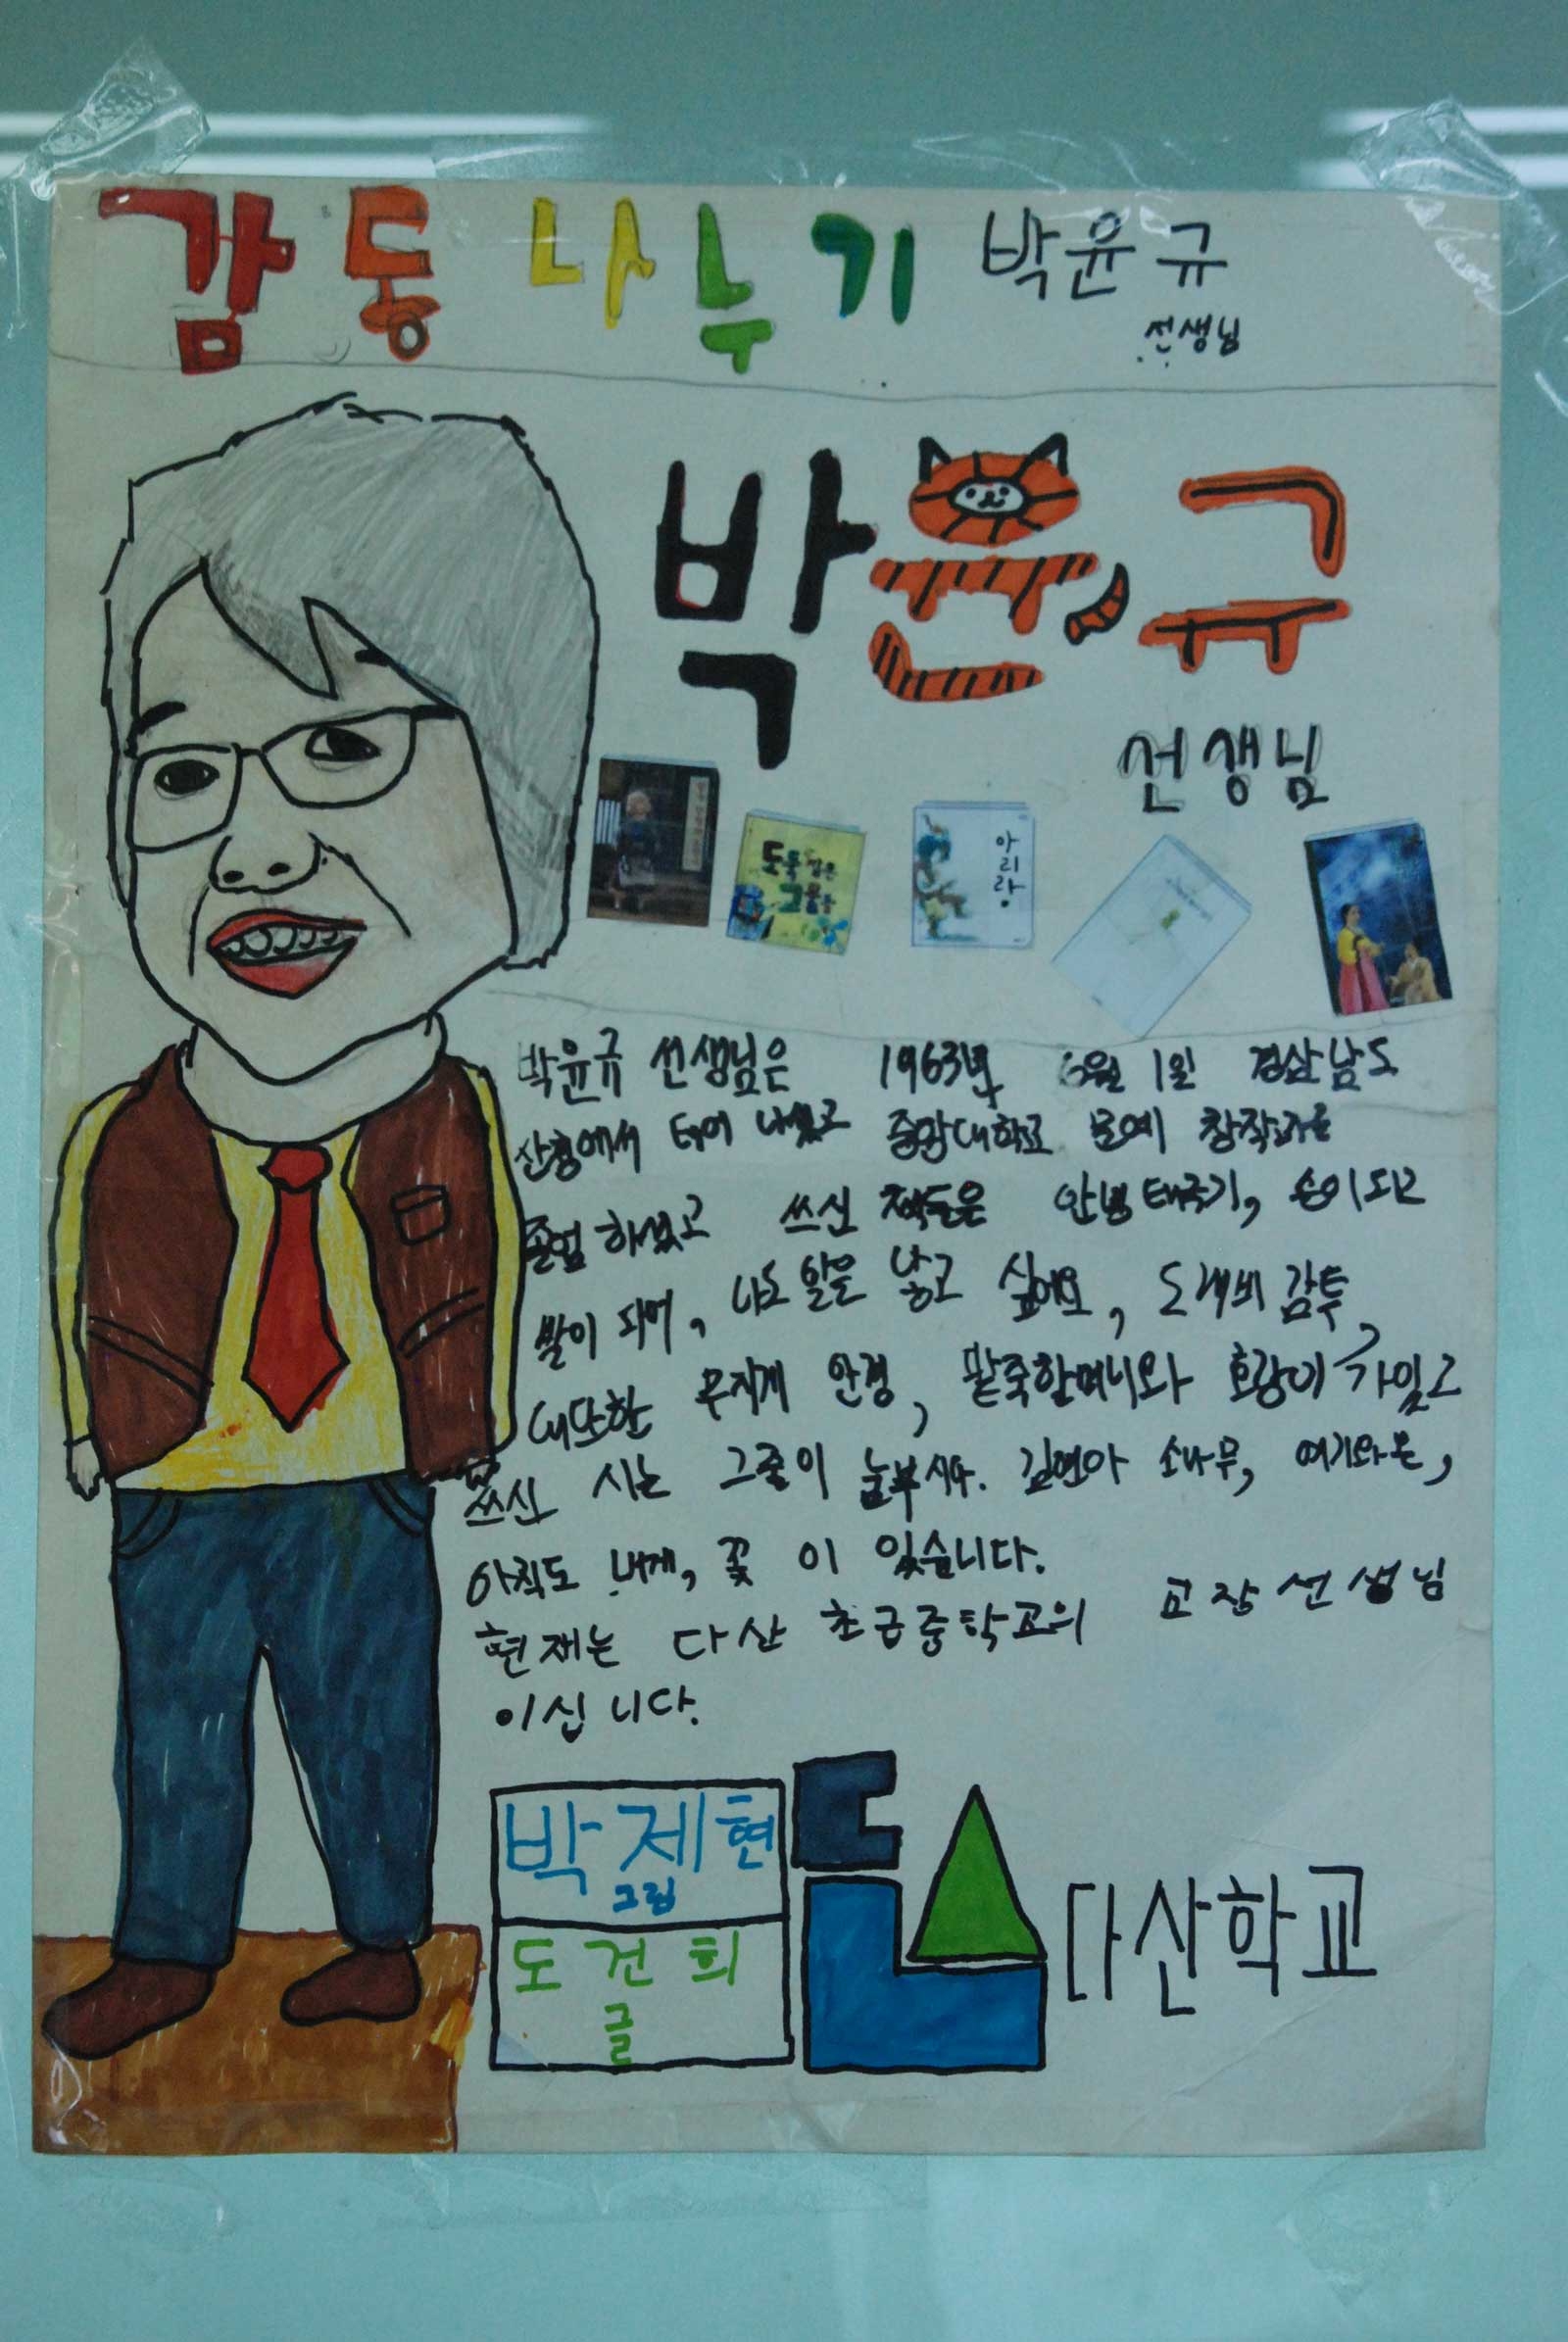 감동 나누기 박윤규
선생님
박윤규
선생님
도둑 잡은
그림들
아리랑
박윤규 선생님은 1963년 6월 1일 경상남도
산청에서 태어 나셨고 중앙대학교 문예 창작과를
졸업 하셨고 쓰신 책들은 안녕 태극기, 손이 되고
발이 되어, 나도 알을 낳고 싶어요, 도깨비 감투,
무지개 안경, 팥죽할머니와 호랑이 가있고
쓰신 시는 그줄이 눈부시다. 김연아 소나무,
아직도 내게, 꽃 이 있습니다.
현재는 다산 초급중학교의 교장선생님
이십니다.
박제현
그림
도건희
글
다산학교